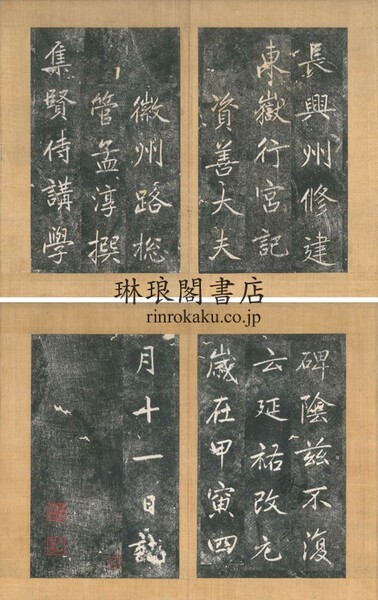 長興州修建
東嶽行宮記
資善大夫
徽州路緫
管孟淳撰
集賢侍講學
琳琅閣書店
rinrokaku.co.jp
碑陰茲不復
云延祐改元
歲在甲寅四
月十一日